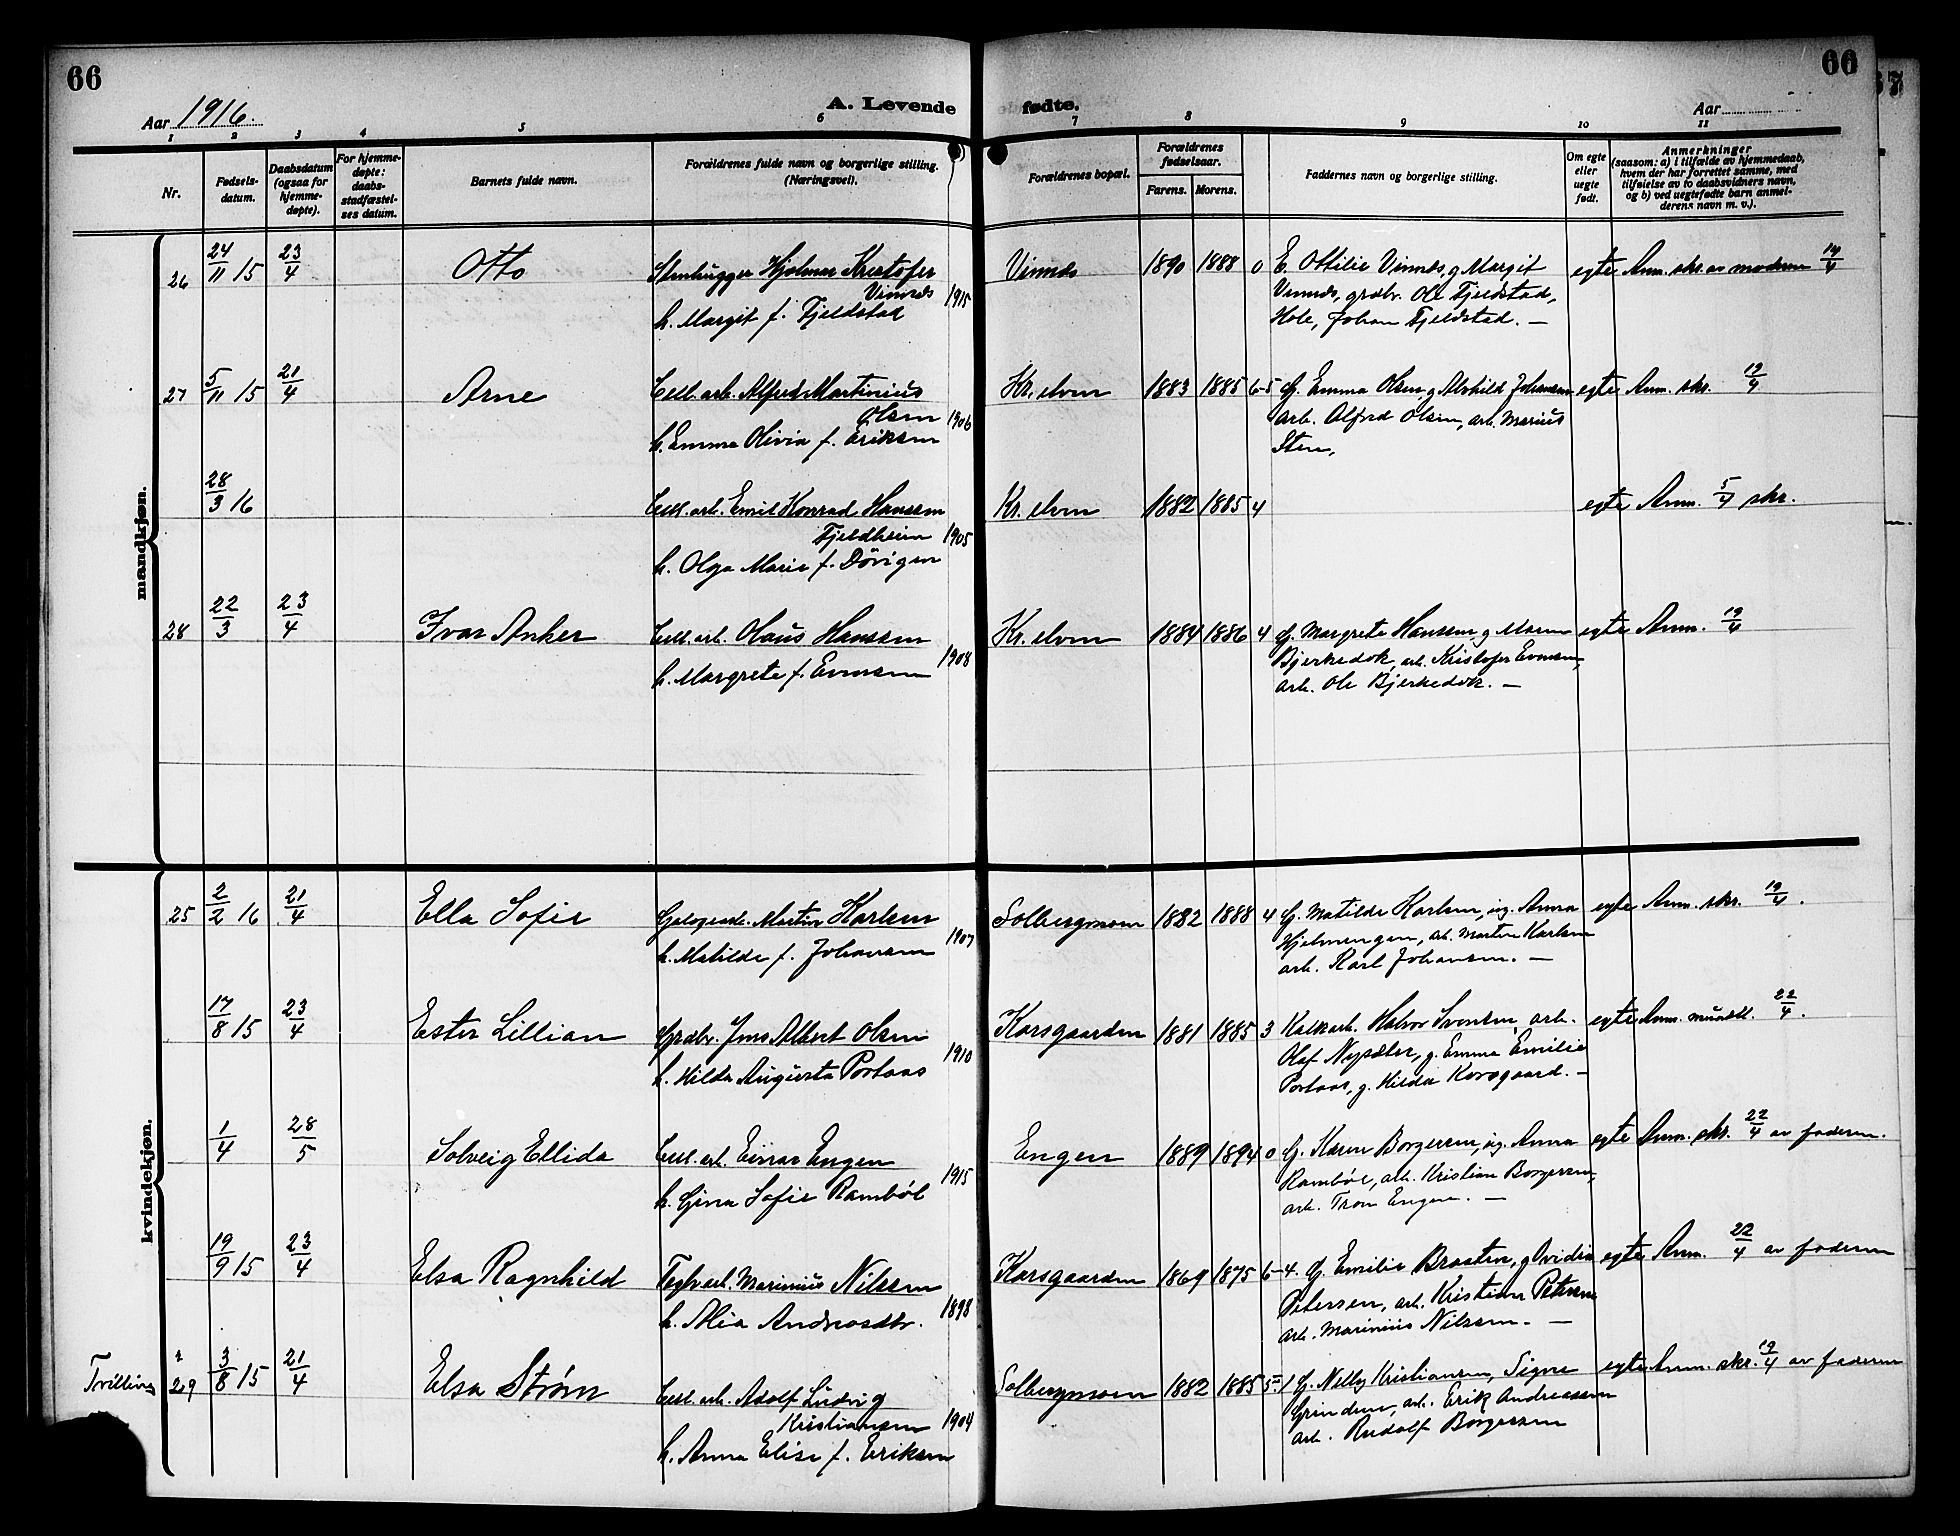 66
66
67
A. Levende fødte.
Aar 1916.
Aar
1 2 3 4 5 6 7 8 9 10 11
Nr.
Fødsels-
datum.
Daabsdatum
(ogsaa for
hjemme-
døpte).
For hjemme-
døpte:
daabs-
stadfæstel-
ses datum.
Barnets fulde navn.
Forældrenes fulde navn og borgerlige stilling.
(Næringsvei).
Forældrenes bopæl.
Forældrenes
fødselsaar.
Farens. Morens.
Faddernes navn og borgerlige stilling.
Om egte
eller
uegte
født.
Anmerkninger
(saasom: a) i tilfælde av hjemmedaab,
hvem der har forrettet samme, med
tilføielse av to daabsvidners navn,
og b) ved uegtefødte barn anmel-
derens navn m. v.).
mandkjøn.
26 24/11 15 23/4 Otto
Stenhugger Hjalmar Kristofer
Vinnes 1915
h. Margit f. Fjeldstad
Vinnes 1890 1888 0
E. Ottilie Vinnes, g Margit
Vinnes, grdbr. Ole Fjeldstad,
Hole, Johan Fjeldstad. —
egte Anm. skr. av moderen 14/4
27 5/11 15 21/4 Arne
Cell. arb. Alfred Martinius
Olsen 1906
h. Emma Olivia f. Eriksen
Kr. elven 1883 1885 6-5
G. Emma Olsen, g Alvhild Johansen
arb. Alfred Olsen, arb. Marius
Sten,
egte Anm. skr. 19/4
28/3 16
Cell. arb. Emil Konrad Hansen
Fjeldheim 1905
h. Olga Marie f. Dövigen
Kr. elven 1882 1885 4
egte Anm. 5/4 skr.
28 22/3 23/4 Ivar Anker
Cell. arb. Olaus Hansen
1908
h. Margrete f. Evensen
Kr. elven 1884 1886 4
G. Margrete Hansen, g Maren
Bjerkedok, arb. Kristofer Evensen,
arb. Ole Bjerkedok. —
egte Anm. 19/4
kvindekjøn.
25 2/2 16 21/4 Ella Sofie
Martin Karlsen
1907
h. Matilde f. Johansen
Solbergmoen 1882 1888 4
G. Matilde Karlsen, ug. Anna
Hjelmengen, arb. Martin Karlsen
arb. Karl Johansen. —
egte Anm. skr. 19/4.
17/8 15 23/4 Ester Lillian
Grdbr. Jens Albert Olsen
1910
h. Hilda Augusta Portaas
Korsgaarden 1881 1885 3
Kalkarb. Halvor Svensen, arb.
Olaf Nysæter, g. Emma Emilie
Portaas, g. Hilda Korsgaard. —
egte Anm. mundtl. 22/4.
1/4 28/5 Solveig Ellida
Cell. arb. Einar Engen
1915
h. Gina Sofie Ramböl
Engen 1889 1894 0
G. Karen Borgersen, ug. Anna
Ramböl, arb. Kristian Borgersen,
arb. Tron Engen. —
egte Anm. skr. 22/4 av faderen.
19/9 15 23/4 Elsa Ragnhild
Teglv. arb. Marinius Nilssen
1898
h. Alia Andreasdtr.
Korsgaarden 1869 1875 6-4.
G. Emilie Braaten, g Ovidia
Petersen, arb. Kristian Petersen
arb. Marinius Nilssen. —
egte Anm. 22/4 av faderen
Tvilling 29 3/8 15 21/4 Elsa Strøm
Cell. arb. Adolf Ludvig
Kristiansen 1904
h. Anna Elise f. Eriksen
Solbergmoen 1882 1885 5-1
G. Nelly Kristiansen, Signe
Grinden, arb. Erik Andreassen
arb. Rudolf Borgersen
egte Anm. skr. 19/4 av faderen